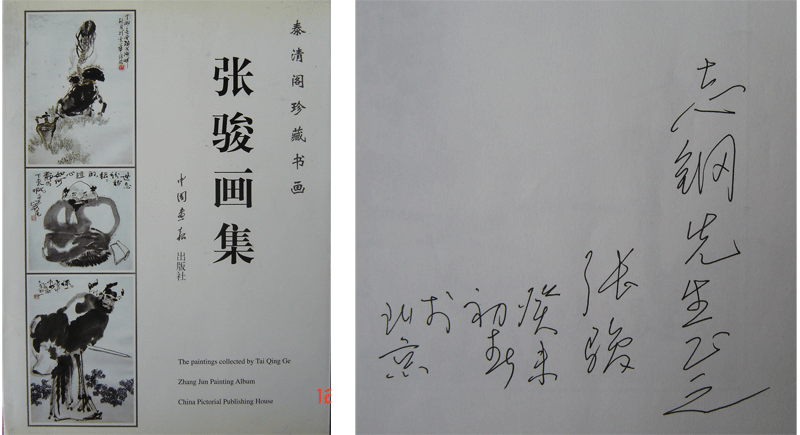 泰清阁珍藏书画
张骏画集
中国画报出版社
The paintings collected by Tai Qing Ge
Zhang Jun Painting Album
China Pictorial Publishing House
12
志钢先生正之
张骏
癸未
初春
于
北京